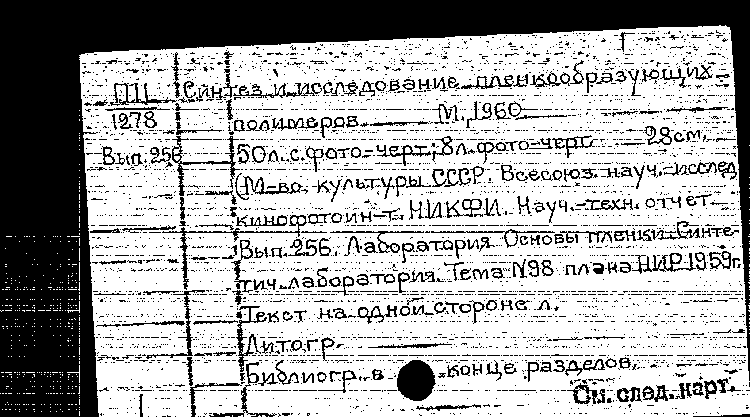 ПЦ Синтез и исследование пленкообразующих
1278 полимеров. М., 1960.
Вып. 256 50л. с фото-черт.; 8л. фото-черт. 28см.
(М-во культуры СССР. Всесоюз. науч.-исслед
кинофотоин-т. НИКФИ. Науч.-техн. отчет
Вып. 256. Лаборатория Основы пленки. Синте-
тич. лаборатория. Тема N98 плана НИР 1959г.
Текст на одной стороне л.
Литогр.
Библиогр. в конце разделов.
См. след. карт.